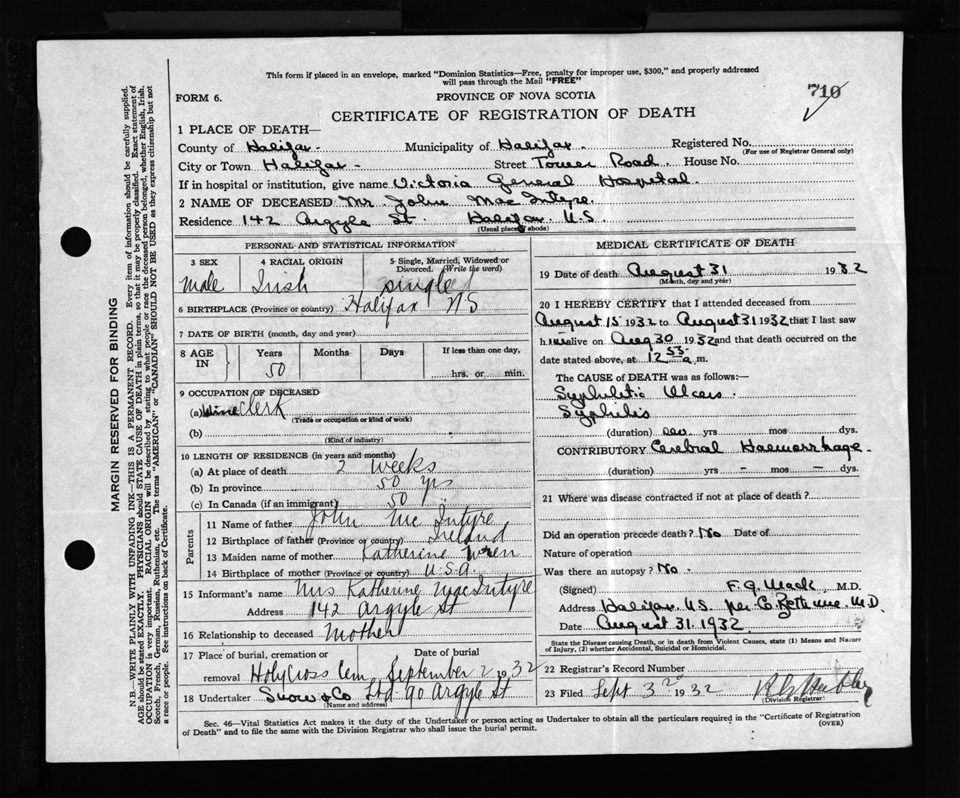 This form if placed in an envelope, marked "Dominion Statistics—Free, penalty for improper use, $300," and properly addressed
will pass through the Mail "FREE"
710
FORM 6.
PROVINCE OF NOVA SCOTIA
CERTIFICATE OF REGISTRATION OF DEATH
1 PLACE OF DEATH—
County of Halifax - Municipality of Halifax - Registered No.
(For use of Registrar General only)
City or Town Halifax - Street Tower Road. House No.
If in hospital or institution, give name Victoria General Hospital.
2 NAME OF DECEASED Mr. John MacIntyre.
Residence 142 Argyle St. Halifax N.S.
(Usual place of abode)
PERSONAL AND STATISTICAL INFORMATION
3 SEX 4 RACIAL ORIGIN 5 Single, Married, Widowed or
Divorced. (Write the word)
Male Irish single
6 BIRTHPLACE (Province or country) Halifax NS
7 DATE OF BIRTH (month, day and year)
8 AGE IN Years Months Days If less than one day,
50 hrs. or min.
9 OCCUPATION OF DECEASED
(a) Clerk
(Trade or occupation or kind of work)
(b)
(Kind of industry)
10 LENGTH OF RESIDENCE (in years and months)
(a) At place of death 2 weeks
(b) In province 50 yrs
(c) In Canada (if an immigrant) 50
Parents
11 Name of father John McIntyre
12 Birthplace of father (Province or country) Ireland
13 Maiden name of mother Katherine Wren
14 Birthplace of mother (Province or country) U.S.A.
15 Informant's name Mrs Katherine MacIntyre
Address 142 Argyle St
16 Relationship to deceased Mother
17 Place of burial, cremation or Date of burial
removal Holy Cross Cem September 2, 1932
18 Undertaker Snow & Co Ltd. 90 Argyle St
(Name and address)
MEDICAL CERTIFICATE OF DEATH
19 Date of death August 31 1932
(Month, day and year)
20 I HEREBY CERTIFY that I attended deceased from
August 15 1932 to August 31 1932 that I last saw
him alive on Aug 30 1932 and that death occurred on the
date stated above, at 12 55 a.m.
The CAUSE OF DEATH was as follows:—
Syphilitic Ulcers.
Syphilis
(duration) yrs mos dys.
CONTRIBUTORY Cerebral Haemorrhage -
(duration) yrs - mos - dys.
21 Where was disease contracted if not at place of death?
Did an operation precede death? No Date of
Nature of operation
Was there an autopsy? No.
(Signed) F. G. Mack, M.D.
Address Halifax. N.S. per M.D.
Date August 31. 1932
State the Disease causing Death, or in death from Violent Causes, state (1) Means and Nature
of Injury, (2) whether Accidental, Suicidal or Homicidal.
22 Registrar's Record Number
23 Filed Sept 3 1932
(Division Registrar)
Sec. 46—Vital Statistics Act makes it the duty of the Undertaker or person acting as Undertaker to obtain all the particulars required in the "Certificate of Registration
of Death" and to file the same with the Division Registrar who shall issue the burial permit.
(OVER)
MARGIN RESERVED FOR BINDING
N.B.—WRITE PLAINLY WITH UNFADING INK—THIS IS A PERMANENT RECORD. Every item of information should be carefully supplied.
AGE should be stated EXACTLY. PHYSICIANS should STATE CAUSE OF DEATH in plain terms, so that it may be properly classified. Exact statement of
OCCUPATION is very important. RACIAL ORIGIN will be described by stating to what people or race the deceased person belonged, whether English, Irish,
Scotch, French, German, Russian, Ruthenian, etc. The terms "AMERICAN" or "CANADIAN" SHOULD NOT BE USED as they express citizenship but not
a race or people. See instructions on back of Certificate.